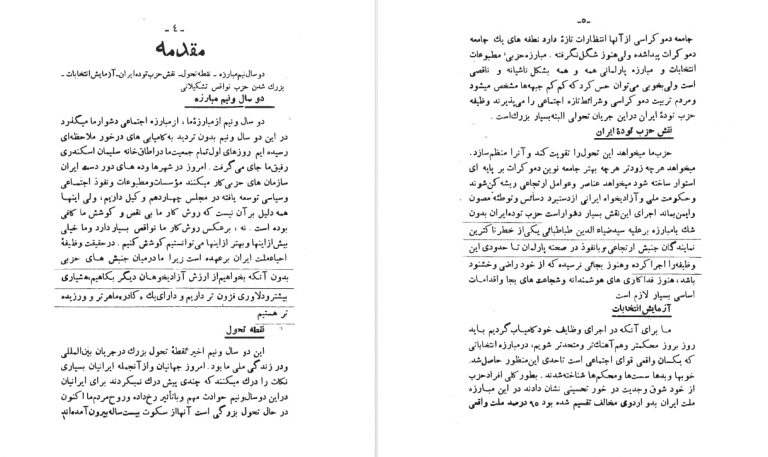 - ٤ -
مقدمه
دو سال نیم مبارزه - نقطه تحول - نقش حزب توده ایران - آزمایش انتخابات -
بزرگ شدن حزب نواقص تشکیلاتی
دو سال ونیم مبارزه
دو سال ونیم از مبارزهٔ ما، از مبارزه اجتماعی دشوار ما میگذرد
در این دو سال ونیم بدون تردید به کامیابی های درخور ملاحظه‌ای
رسیده ایم روزهای اول تمام جمعیت ما در اطاق خانه سلیمان اسکندری
رفیق ما جای می گرفت. امروز در شهرها وده های دور دست ایران
سازمان های حزبی کار میکنند مؤسسات ومطبوعات ونفوذ اجتماعی
وسیاسی توسعه یافته در مجلس چهاردهم وکیل داریم، ولی اینها
همه دلیل بر آن نیست که روش کار ما بی نقص و کوشش ما کافی
بوده است . نه ، برعکس روش کار ما نواقصی بسیار دارد وما خیلی
بیش از اینها وبهتر از اینها می توانستیم کوشش کنیم . در حقیقت وظیفهٔ
احیاء ملت ایران برعهده است زیرا ما در میان جنبش های حزبی
بدون آنکه بخواهیم از ارزش آزادیخواهان دیگر بکاهیم، هشیاری
بیشتر ودلاوری فزون تر داریم و دارای یك کادر، ماهر تر و ورزیده
تر هستیم
نقطه تحول
این دو سال ونیم اخیر نقطهٔ تحول بزرگ در جریان بین‌المللی
ودر زندگی ملی ما بود . امروز جهانیان واز آنجمله ایرانیان بسیاری
نکات را درك میکنند که چندی پیش درك نمیکردند برای ایرانیان
در این دو سال ونیم حوادث مهم وباتأثیر رخ داده وروح مردم ما اکنون
در حال تحول بزرگی است آنها از سکوت بیست ساله بیرون آمده اند
- ٥ -
جامعه دمو کراسی از آنها انتظارات تازهٔ دارد نطفه های یك جامعه
دمو کرات پیدا شده ولی هنوز شکل نگرفته . مبارزه حزبی، مطبوعات
انتخابات و مبارزه پارلمانی همه و همه بشکل ناشیانه و ناقصی
است ولی بخوبی می توان حس کرد که کم کم جبهه‌ها مشخص میشود
ومردم تربیت دمو کراسی وشرائط تازه اجتماعی را می‌پذیرند وظیفه
حزب تودهٔ ایران در این جریان تحولی البته بسیار بزرگ است .
نقش حزب تودهٔ ایران
حزب ما میخواهد این تحول را تقویت کند و آنرا منظم سازد.
میخواهد هرچه زودتر هرچه بهتر جامعه نوین دمو کرات بر پایه ای
استوار ساخته شود میخواهد عناصر وعوامل ارتجاعی ریشه کن شوند
وحکومت ملی و آزادیخواه ایرانی از دستبرد دسائس وتوطئه مصون
وایمن بماند اجرای این نقش بسیار دشوار است حزب توده ایران بدون
شك با مبارزه بر علیه سید ضیاء الدین طباطبائی یکی از خطرناکترین
نمایندگان جنبش ارتجاعی و با نفوذ در صحنه پارلمان تا حدودی این
وظیفه را اجرا کرده وهنوز بجائی نرسیده که از خود راضی وخشنود
باشد، هنوز فداکاری های هوشمندانه وشجاعت های بجا واقدامات
اساسی بسیار لازم است
آزمایش انتخابات
ما برای آنکه در اجرای وظایف خود کامیاب گردیم باید
روز بروز محکمتر وهم آهنگ تر ومتحدتر شویم، در مبارزه انتخاباتی
که یکسان واقعی قوای اجتماعی است تا حدی این منظور حاصل شد.
خوبها وبدها سست‌ها ومحکم‌ها شناخته شدند . بطور کلی افراد حزب
از خود شوق وجدیت در خور تحسینی نشان دادند در این مبارزه
ملت ایران بدو اردوی مخالف تقسیم شده بود ۹۵ درصد ملت واقعی